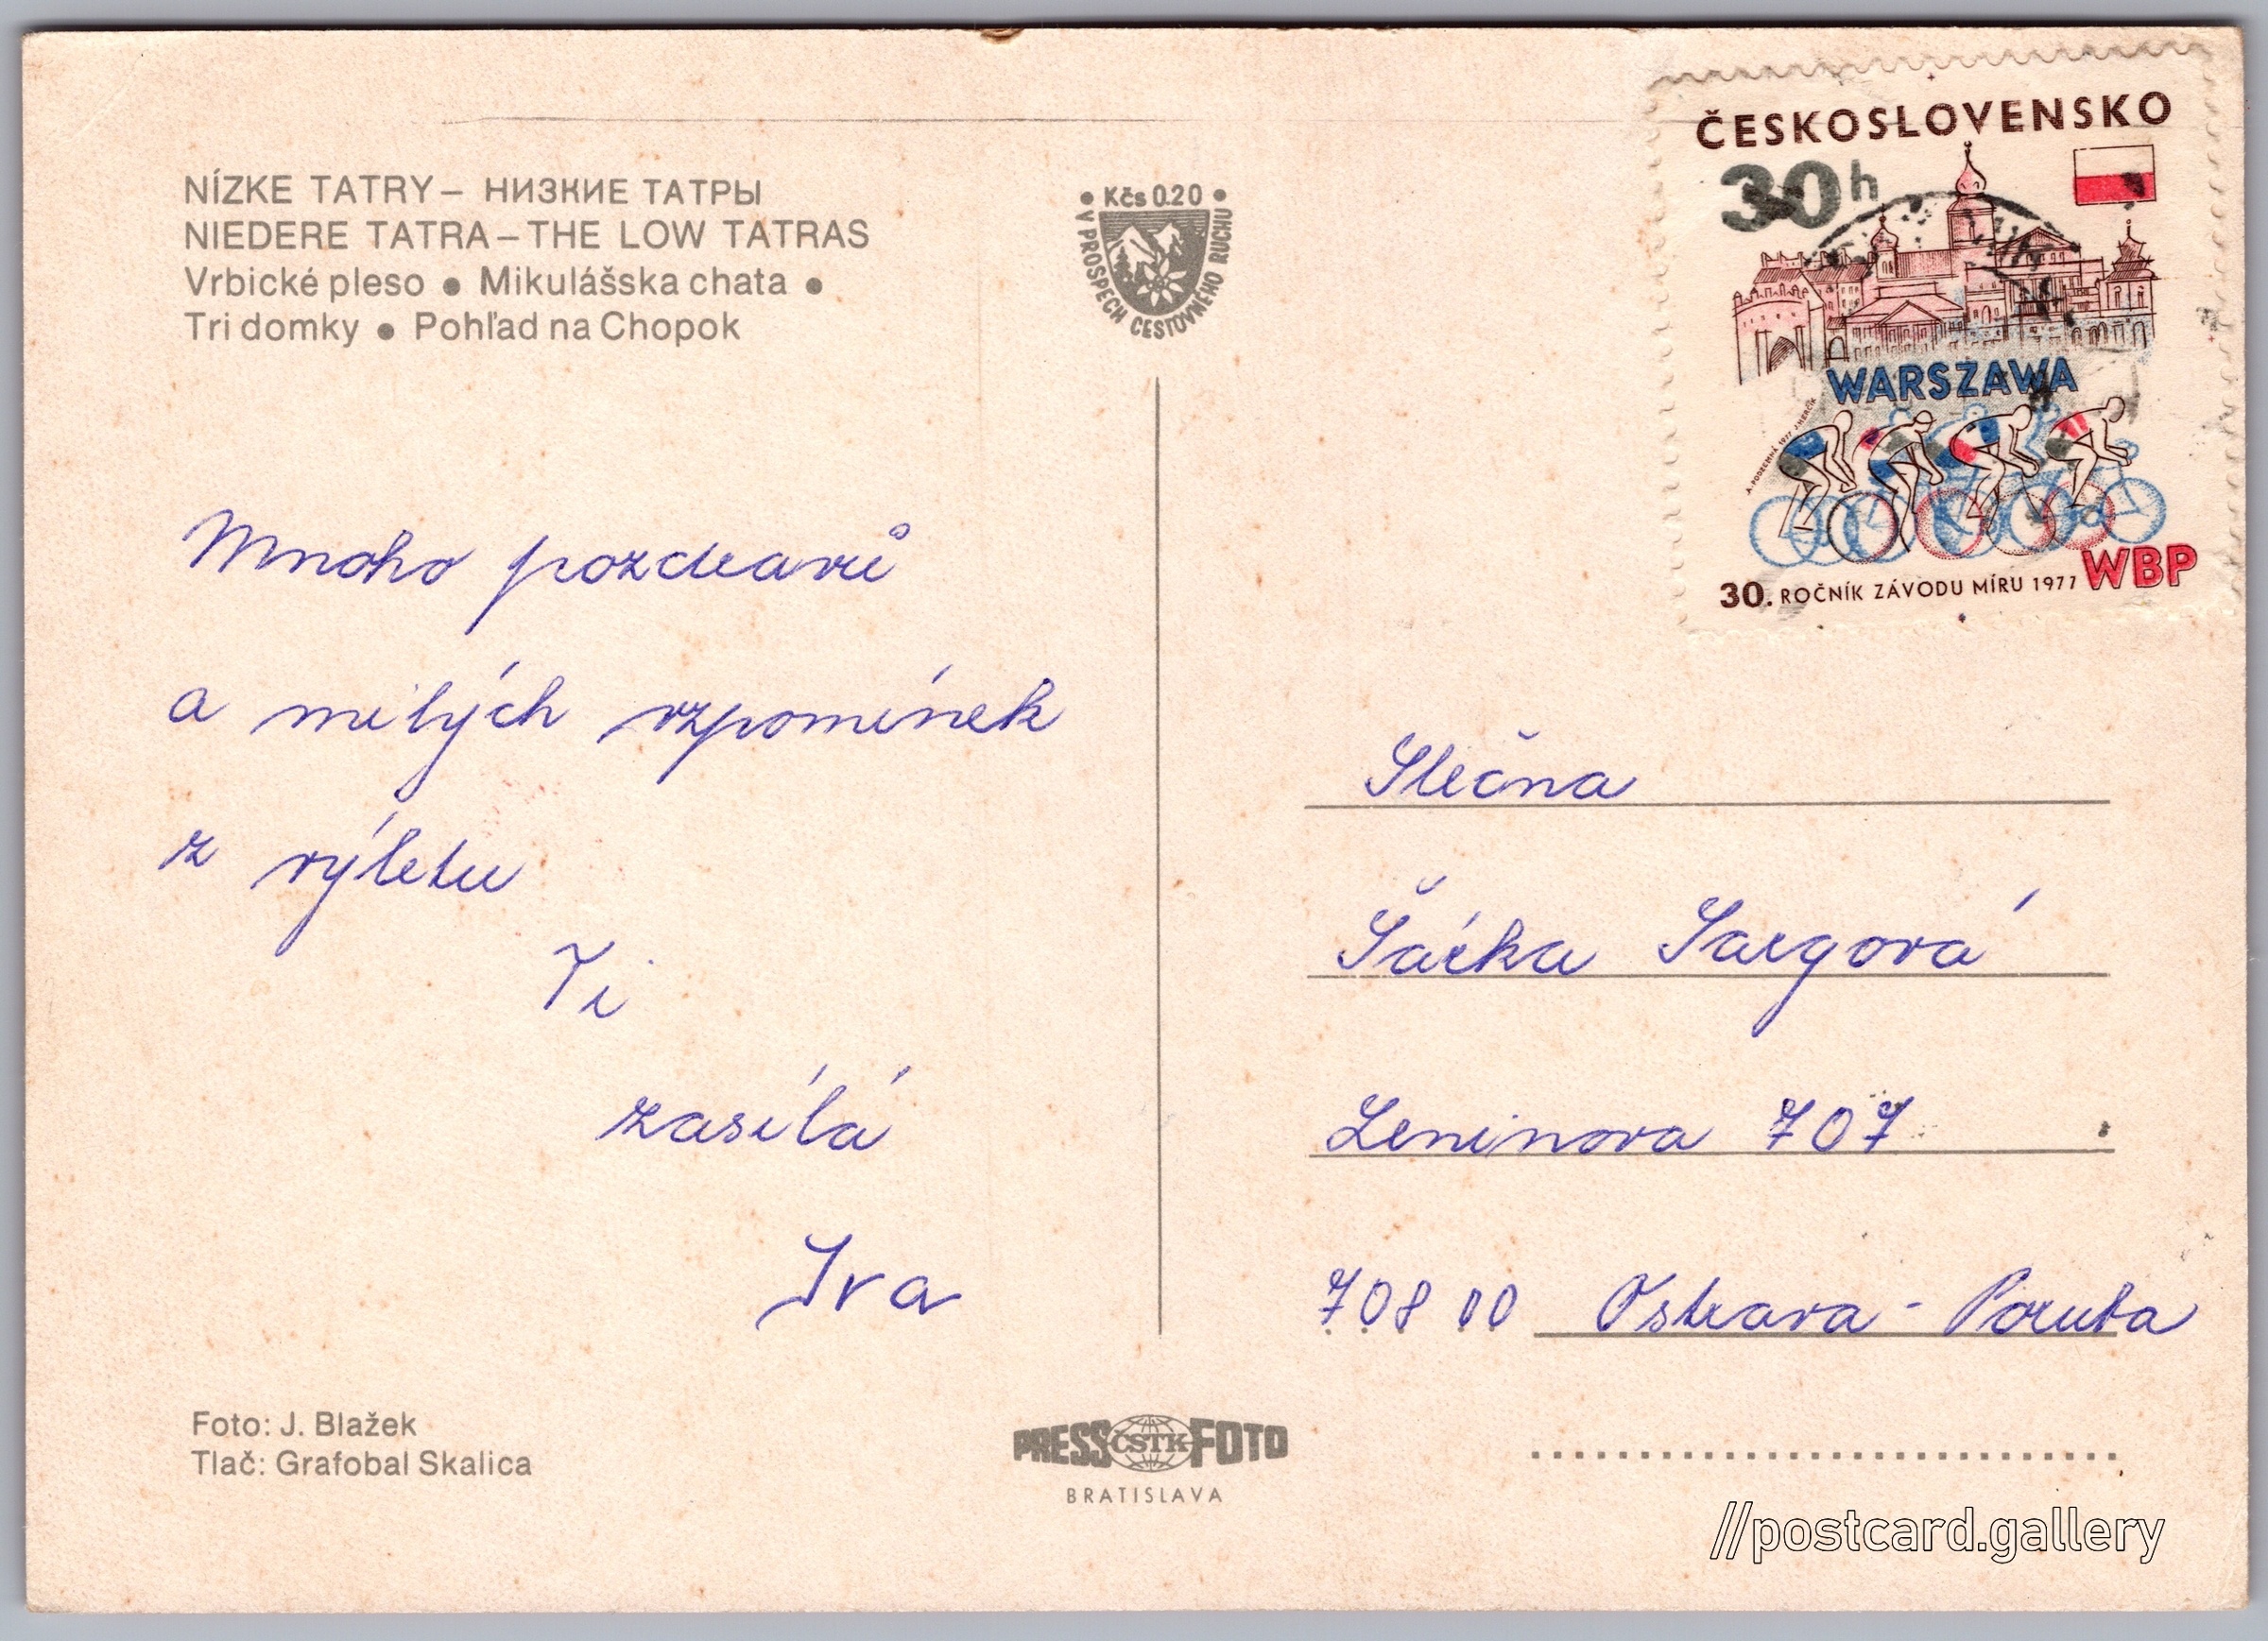 NÍZKE TATRY – НИЗКИЕ ТАТРЫ
NIEDERE TATRA – THE LOW TATRAS
Vrbické pleso ● Mikulášska chata ●
Tri domky ● Pohľad na Chopok
• Kčs 0.20 •
V PROSPECH CESTOVNÉHO RUCHU
ČESKOSLOVENSKO
30h
WARSZAWA
A. PODZEMNÁ 1977 J. HERČÍK
WBP
30. ROČNÍK ZÁVODU MÍRU 1977
Mnoho pozdravů
a milých vzpomínek
z výletu
Ti
zasílá
Iva
Slečna
Šárka Sargová
Leninova 707
708 00 Ostrava - Poruba
Foto: J. Blažek
Tlač: Grafobal Skalica
PRESS ČSTK FOTO
BRATISLAVA
//postcard.gallery